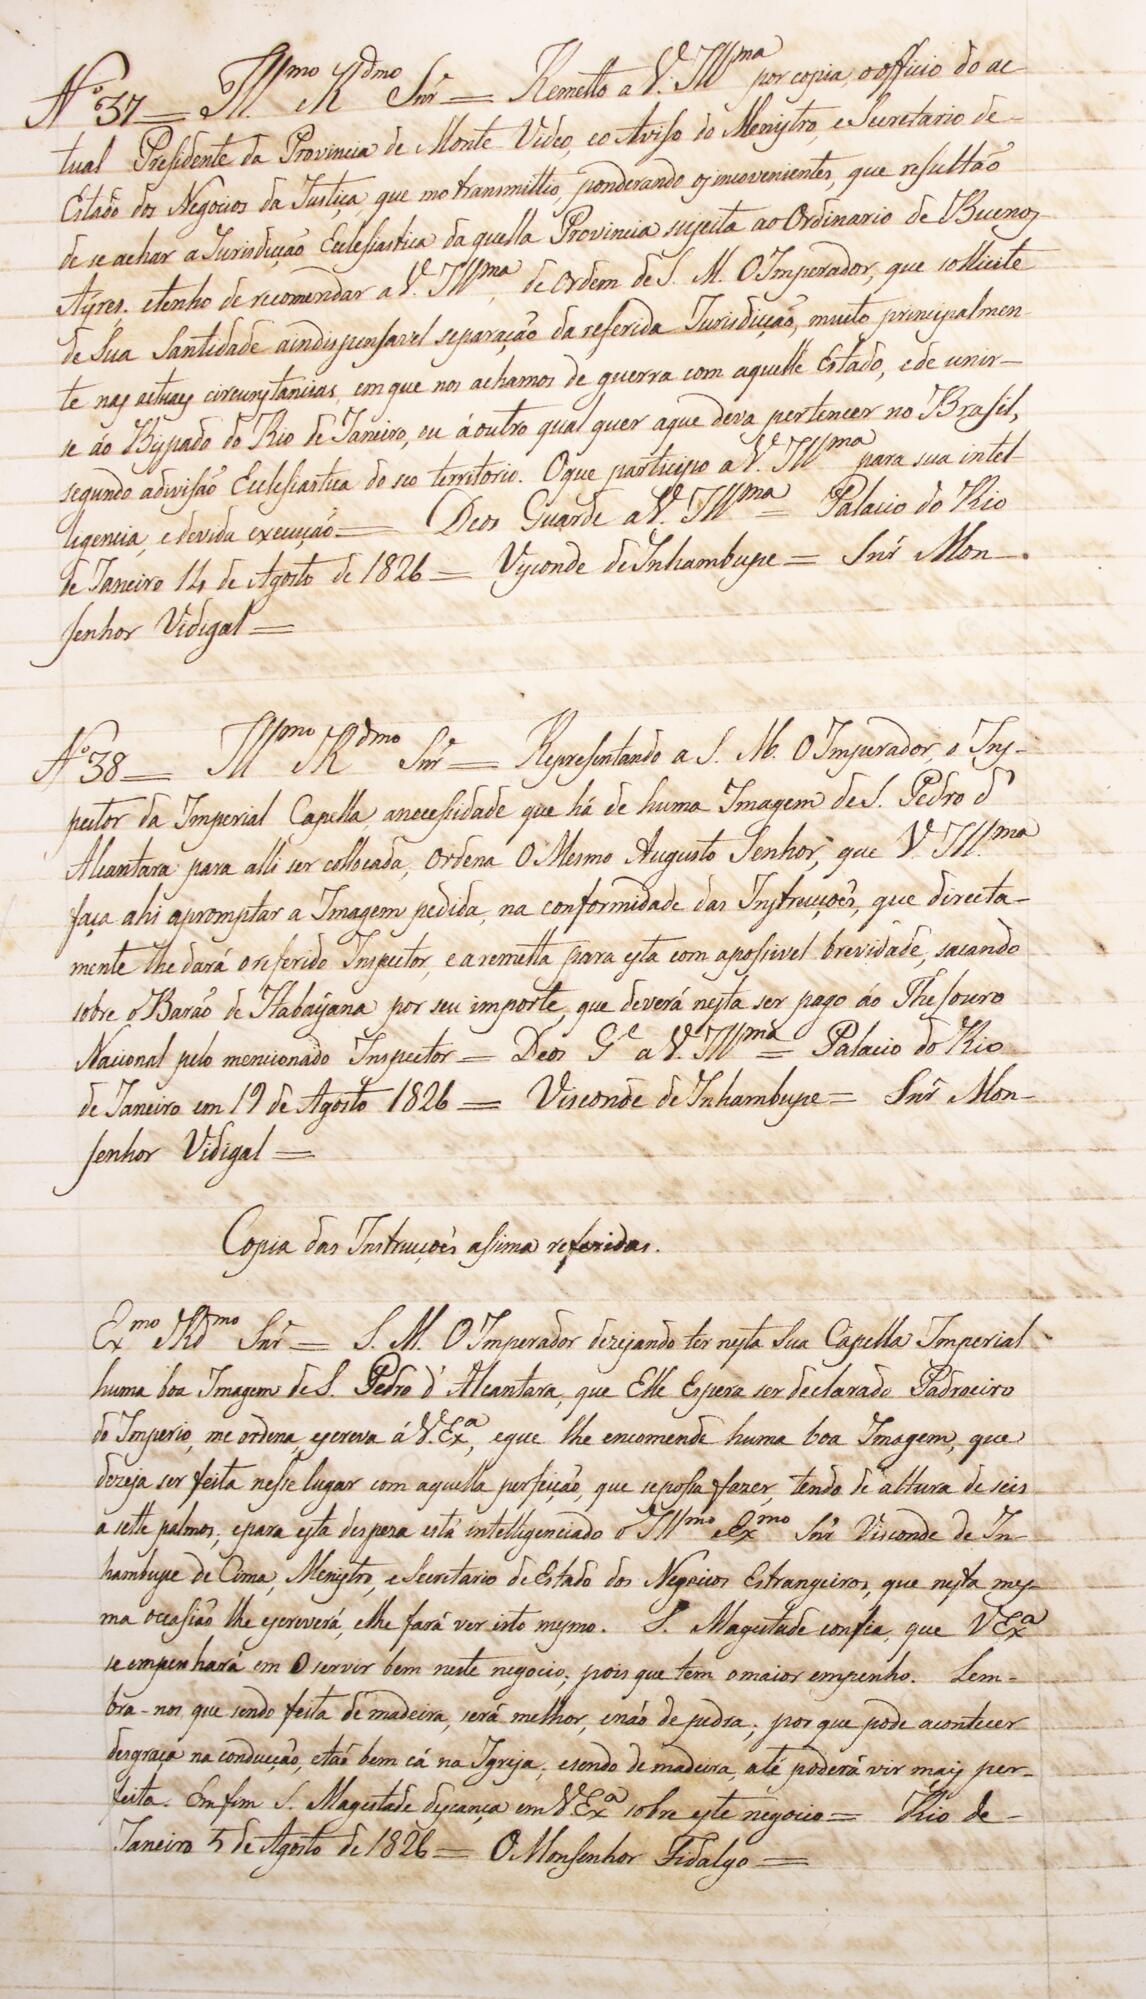 Nº 37 = Ill.mo R.dmo Snr̃ = Remetto a V. Ill.ma por copia, o officio do ac-
tual Presidente da Provincia de Monte Video, e o Aviso do Menistro, e Secretario de-
Estado dos Negocios da Justiça, que mo transmittio, ponderando os incovenientes, que resultão
de se achar a Jurisdicção Ecclesiastica daquella Provincia sugeita ao Ordinario de Buenos
Ayres. e tenho de recomendar a V. Ill.ma, de ordem de S. M. O Imperador, que sollicite
de Sua Santidade a indispensavel separação da referida Jurisdicção, muito principalmen-
te nas actuaes circunstancias, em que nos achamos de guerra com aquelle Estado, e de unir-
se áo Bispado do Rio de Janeiro, ou á outro qual quer a que deva pertencer no Brasil,
segundo a divisão Ecclesiastica do seo territorio. O que participo a V. Ill.ma para sua intel-
ligencia, e devida execução = Deos Guarde a V. Ill.ma = Palacio do Rio
de Janeiro 14 de Agosto de 1826 = Visconde de Inhambupe = Snr̃ Mon-
senhor Vidigal =
Nº 38 = Ill.mo R.dmo Snr̃ = Representando a S. M. O Imperador, o Ins-
pector da Imperial Capella, a necessidade que há de huma Imagem de S. Pedro d'
Alcantara para alli ser collocada, Ordena O Mesmo Augusto Senhor, que V. Ill.ma
faça ahi apromptar a Imagem pedida, na conformidade das Instrucçoẽs, que directa-
mente lhe dará o referido Inspector, e a remetta para esta com a possivel brevidade, sacando
sobre o Barão de Itabayana por seu importe, que deverá nesta ser pago áo Thesouro
Nacional pelo mencionado Inspector = Deos G.e a V. Ill.ma = Palacio do Rio
de Janeiro em 19 de Agosto 1826 = Visconde de Inhambupe = Snr̃ Mon-
senhor Vidigal =
Copia das Instrucçoẽs assima referidas.
Ex.mo R.dmo Snr̃ = S. M. O Imperador dezejando ter nesta Sua Capella Imperial
huma boa Imagem de S. Pedro d'Alcantara, que Elle Espera ser declarado Padroeiro
do Imperio, me ordena, escreva á V. Ex.a, e que lhe encomende huma boa Imagem, que
dezeja ser feita nesse lugar com aquella perfeição, que se possa fazer, tendo de altura de seis
a sette palmos; e para esta despeza está intelligenciado o Ill.mo e Ex.mo Snr̃ Visconde de In-
hambupe de Cima, Menistro, e Secretario de Estado dos Negocios Estrangeiros, que nesta mes-
ma occasião lhe escreverá, e lhe fará ver isto mesmo. S. Magestade confia, que V Ex.a
se empenhará em O servir bem neste negocio; pois que tem o maior empenho. Lem-
bra-nos, que sendo feita de madeira, será melhor, e não de pedra; por que pode acontecer
desgraça na conducção, e taõ bem cá na Igreja; e sendo de madeira, até poderá vir mais per-
feita. Em fim S. Magestade discança em V Ex.a sobre este negocio = Rio de-
Janeiro 5 de Agosto de 1826 = O Monsenhor Fidalgo =